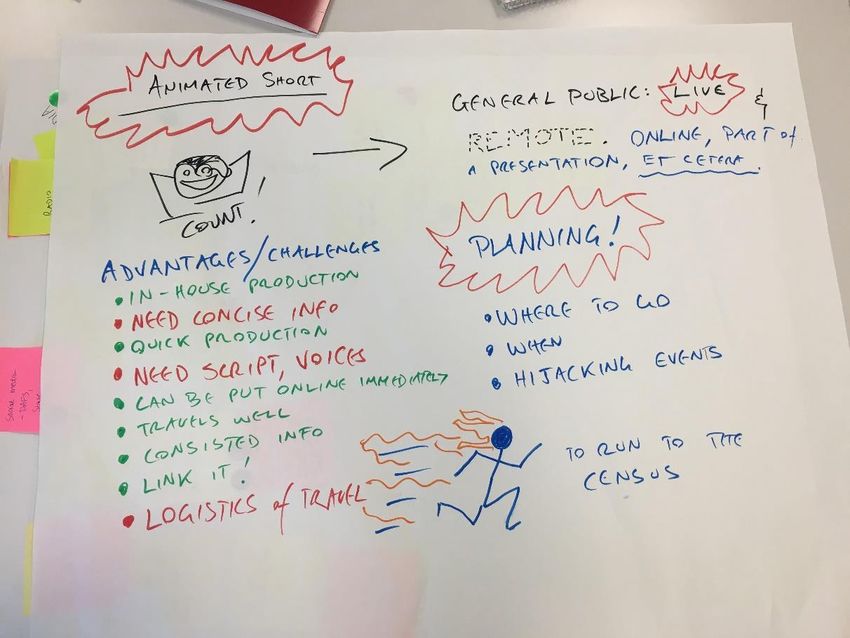 ANIMATED SHORT
COUNT!
ADVANTAGES/CHALLENGES
• IN-HOUSE PRODUCTION
• NEED CONCISE INFO
• QUICK PRODUCTION
• NEED SCRIPT, VOICES
• CAN BE PUT ONLINE IMMEDIATELY
• TRAVELS WELL
• CONSISTED INFO
• LINK IT!
• LOGISTICS of TRAVEL
GENERAL PUBLIC: LIVE &
REMOTE. ONLINE, PART of
A PRESENTATION, ET CETERA.
PLANNING!
• WHERE TO GO
• WHEN
• HIJACKING EVENTS
TO RUN TO THE
CENSUS
RADIO
Social media